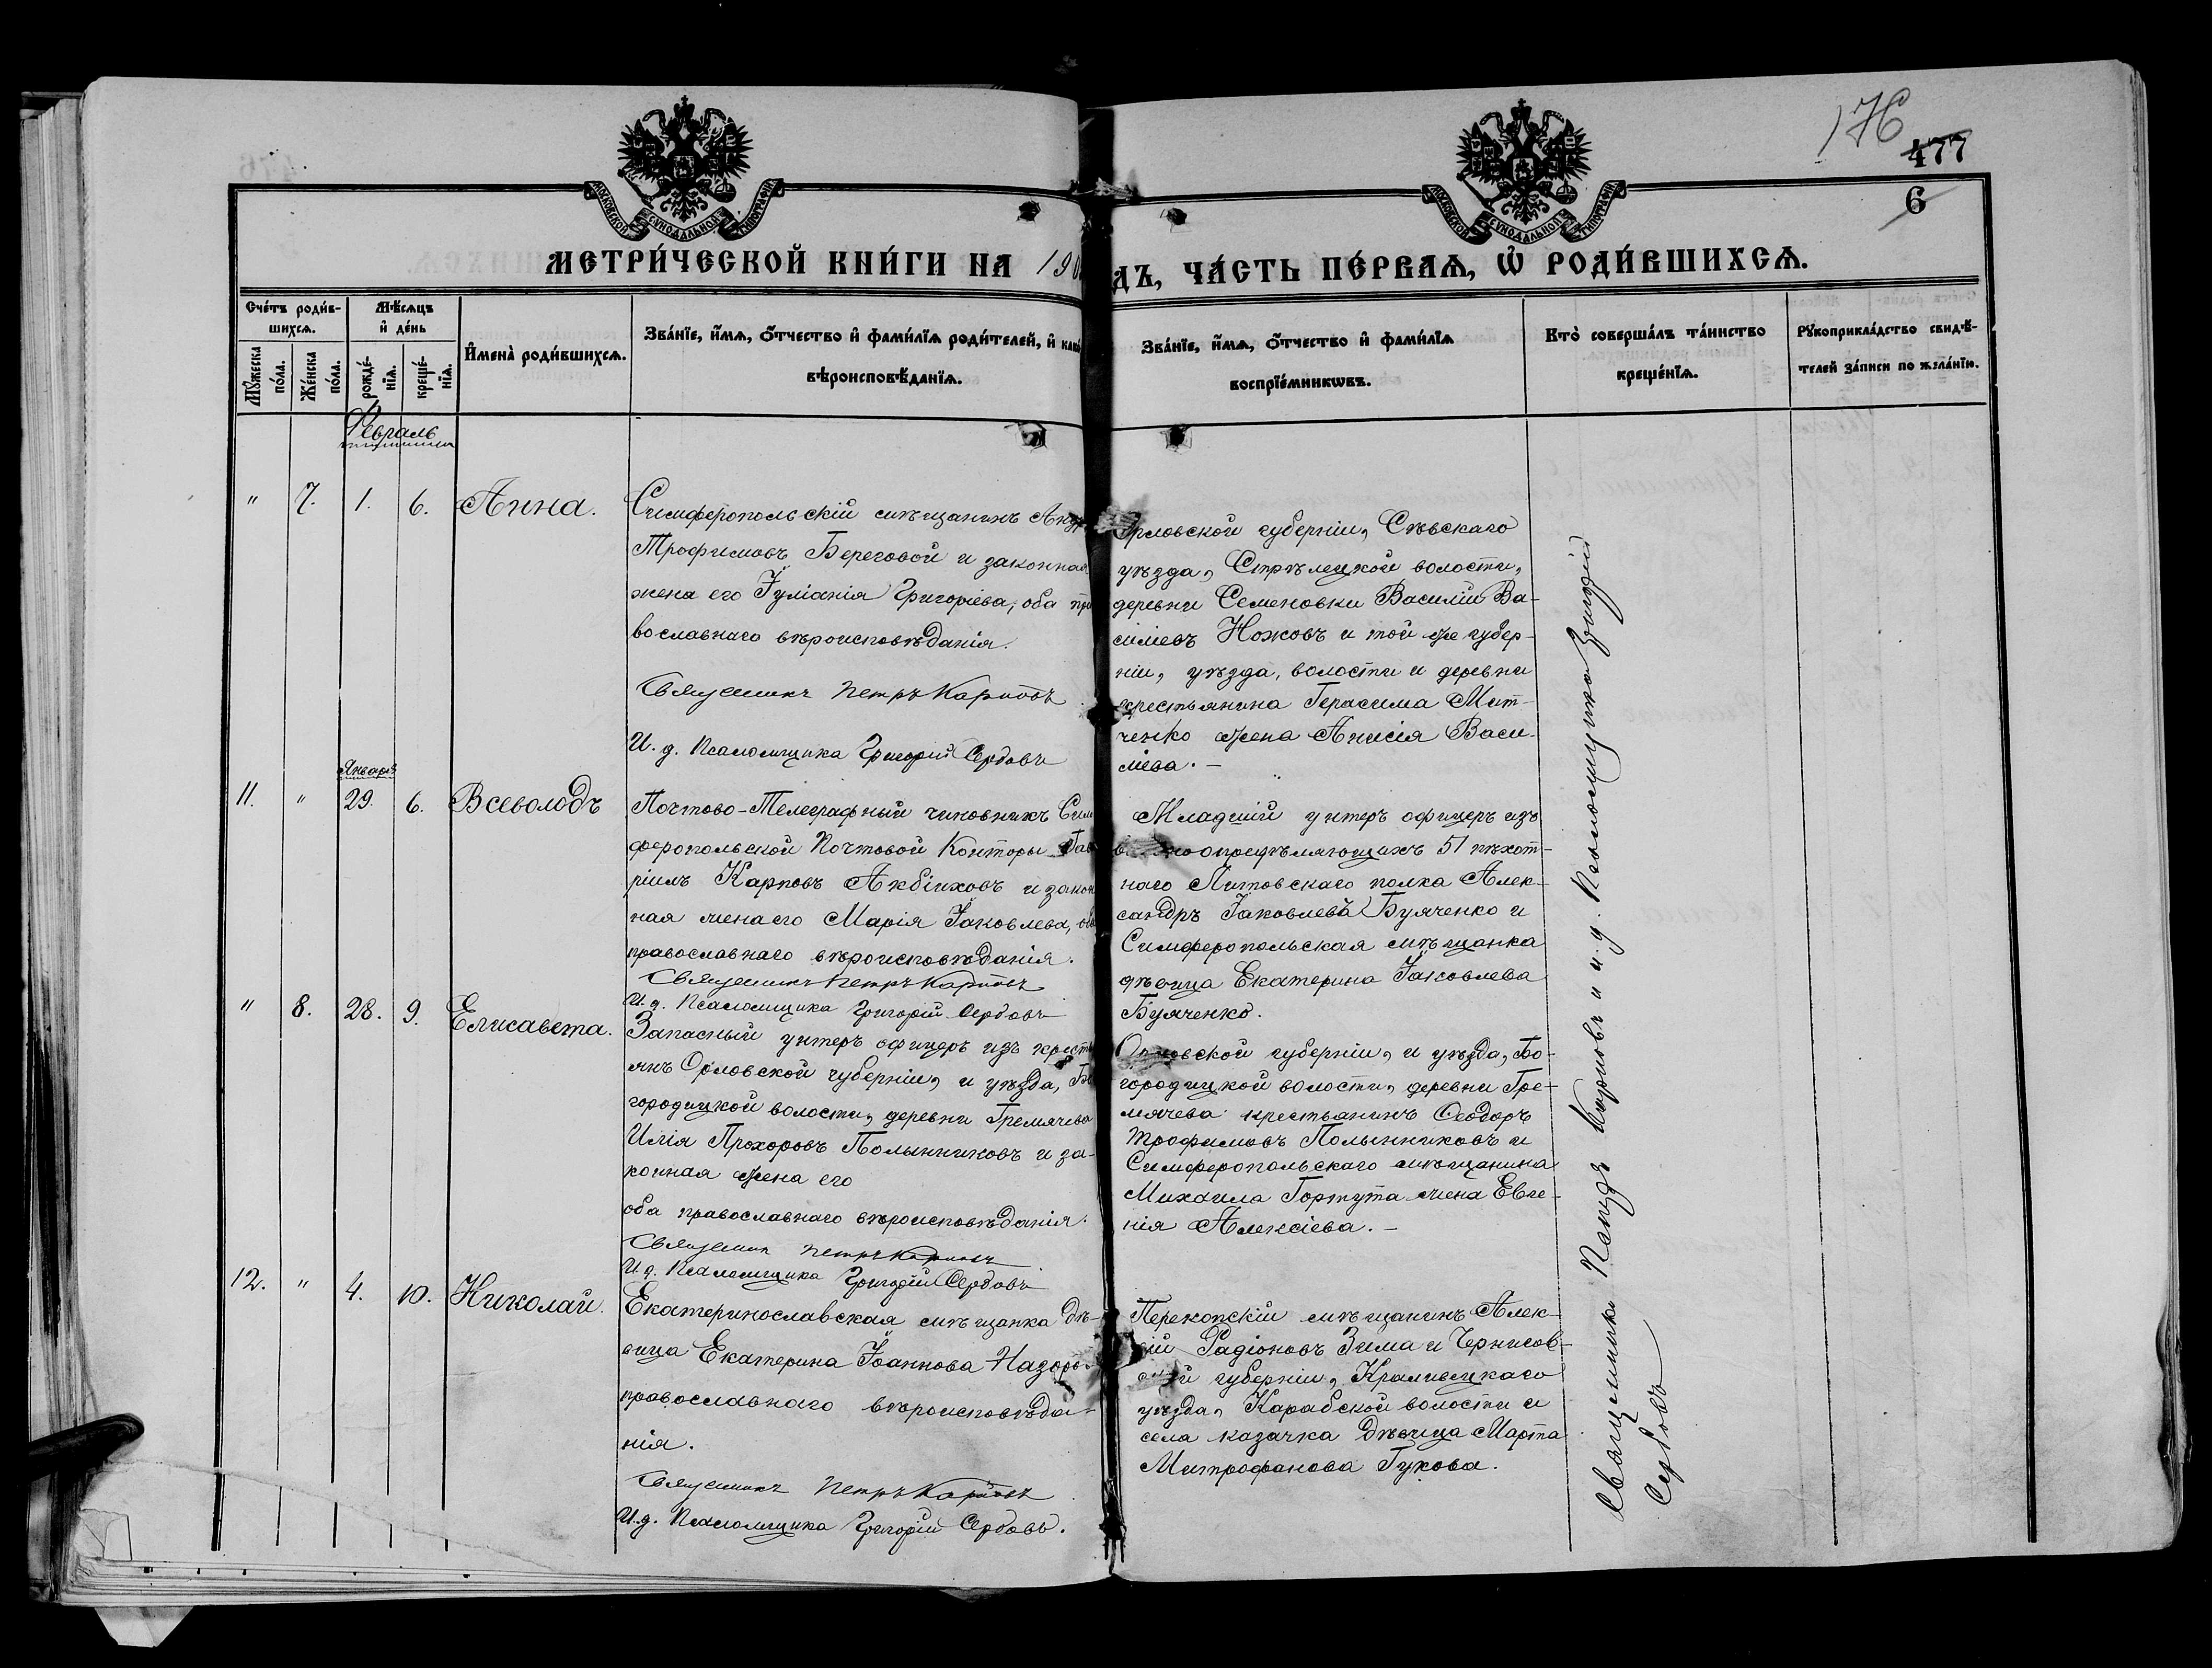 176
477
6
МОСКОВСКОЙ СУНОДАЛЬНОЙ ТИПОГРАФІИ
МОСКОВСКОЙ СУНОДАЛЬНОЙ ТИПОГРАФІИ
МЕТРИ́ЧЕСКОЙ КНИ́ГИ НА 190
ДЪ, ЧА́СТЬ ПЕ́РВАѦ, Ѡ҆ РОДИ́ВШИХСѦ.
Сче́тъ роди́в-
шихсѧ.
Мѣ́сѧцъ
и҆ де́нь
Мꙋ́жеска
по́ла.
Же́нска
по́ла.
рожде́-
нїѧ.
креще́-
нїѧ.
И҆мена̀ роди́вшихсѧ.
Зва́нїе, и҆́мѧ, ѻ҆́тчество и҆ фами́лїѧ роди́телей, и҆
вѣроисповѣ́данїѧ.
Зва́нїе, и҆́мѧ, ѻ҆́тчество и҆ фами́лїѧ
воспрїе́мникѡвъ.
Кто̀ соверша́лъ та́инство
креще́нїѧ.
Рꙋкоприкла́дство свидѣ́-
телей за́писи по жела́нїю.
Февраль
" 7. 1. 6. Анна.
Симферопольскій мѣщанинъ
Трофимовъ Береговой и законная
жена его Іуліанія Григоріева, оба пра
вославнаго вѣроисповѣданія.
Священникъ Петръ Карповъ
И. д. Псаломщика Григорій Сербовъ
Орловской губерніи, Сѣвскаго
уѣзда, Стрѣлецкой волости,
деревни Семеновки Василій Ва-
силіевъ Ножовъ и той же губер-
ніи, уѣзда, волости и деревни
крестьянина Герасима Мит-
ченко жена Анисія Васи-
ліева. –
Января
11. " 29. 6. Всеволодъ
Почтово-Телеграфный чиновникъ Сим
феропольской Почтовой Конторы Гав
ріилъ Карповъ Акбіиховъ и закон
ная жена его Марія Іаковлева,
православнаго вѣроисповѣданія.
Священникъ Петръ Карповъ
И. д. Псаломщика Григорій Сербовъ
Младшій унтеръ офицеръ изъ
опредѣляющихъ 51 пѣхот-
наго Литовскаго полка Алек-
сандръ Іаковлевъ Буяченко и
Симферопольская мѣщанка
дѣвица Екатерина Іаковлева
Буяченко.
" 8. 28. 9. Елисавета.
Запасный унтеръ офицеръ изъ кресть
янъ Орловской губерніи, и уѣзда, Бо
городицкой волости, деревни Гремячева
Илія Прохоровъ Полынниковъ и за-
конная жена его
оба православнаго вѣроисповѣданія.
Священник Петръ Карповъ
И. д. Псаломщика Григорій Сербовъ
Орловской губерніи, и уѣзда, Бо-
городицкой волости, деревни Гре-
мячева крестьянинъ Ѳеодоръ
Трофимовъ Полынниковъ и
Симферопольскаго мѣщанина
Михаила Гортута жена Евге-
нія Алексіева. –
12. " 4. 10. Николай.
Екатеринославская мѣщанка дѣ-
вица Екатерина Іоаннова
православнаго вѣроисповѣда-
нія.
Священникъ Петръ Карповъ
И. д. Псаломщика Григорій Сербовъ.
Перекопскій мѣщанинъ Алек-
сій Радіоновъ Зима и
губерніи,
уѣзда, Карабской волости и
села казачка дѣвица Марта
Митрофанова Гукова.
Священники
Карповъ и и. д. Псаломщика
Сербовъ